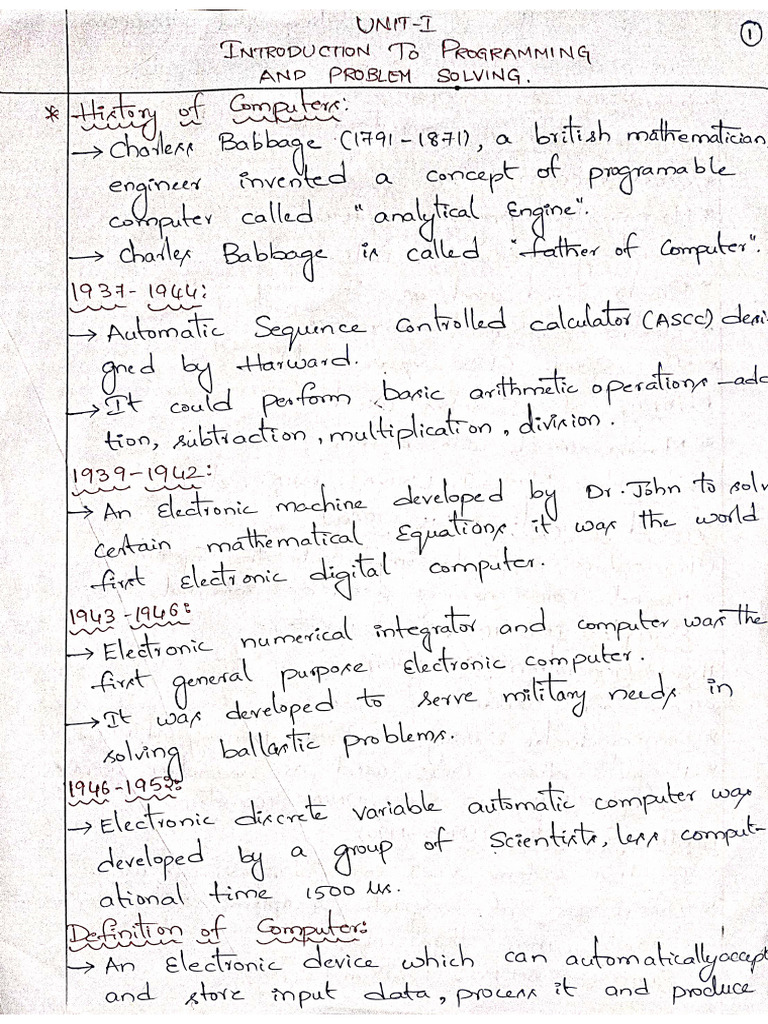 UNIT-I
1
INTRODUCTION TO PROGRAMMING
AND PROBLEM SOLVING.
* History of Computers:
→ Charless Babbage (1791-1871), a british mathematician
engineer invented a concept of programable
computer called "analytical Engine".
→ Charles Babbage is called "father of Computer".
1937-1944:
→ Automatic Sequence Controlled calculator (ASCC) desi-
gned by Harward.
→ It could perform basic arithmetic operations -add
tion, subtraction, multiplication, division.
1939-1942:
→ An Electronic machine developed by Dr. John to solv
certain mathematical Equations. it was the world
first Electronic digital computer.
1943-1946:
→ Electronic numerical integrator and computer was the
first general purpose Electronic computer.
→ It was developed to serve military needs in
solving ballastic problems.
1946-1952:
→ Electronic discrete variable automatic computer was
developed by a group of Scientists, less comput-
ational time 1500 us.
Definition of Computer:
→ An Electronic device which can automatically accept
and store input data, process it and produce